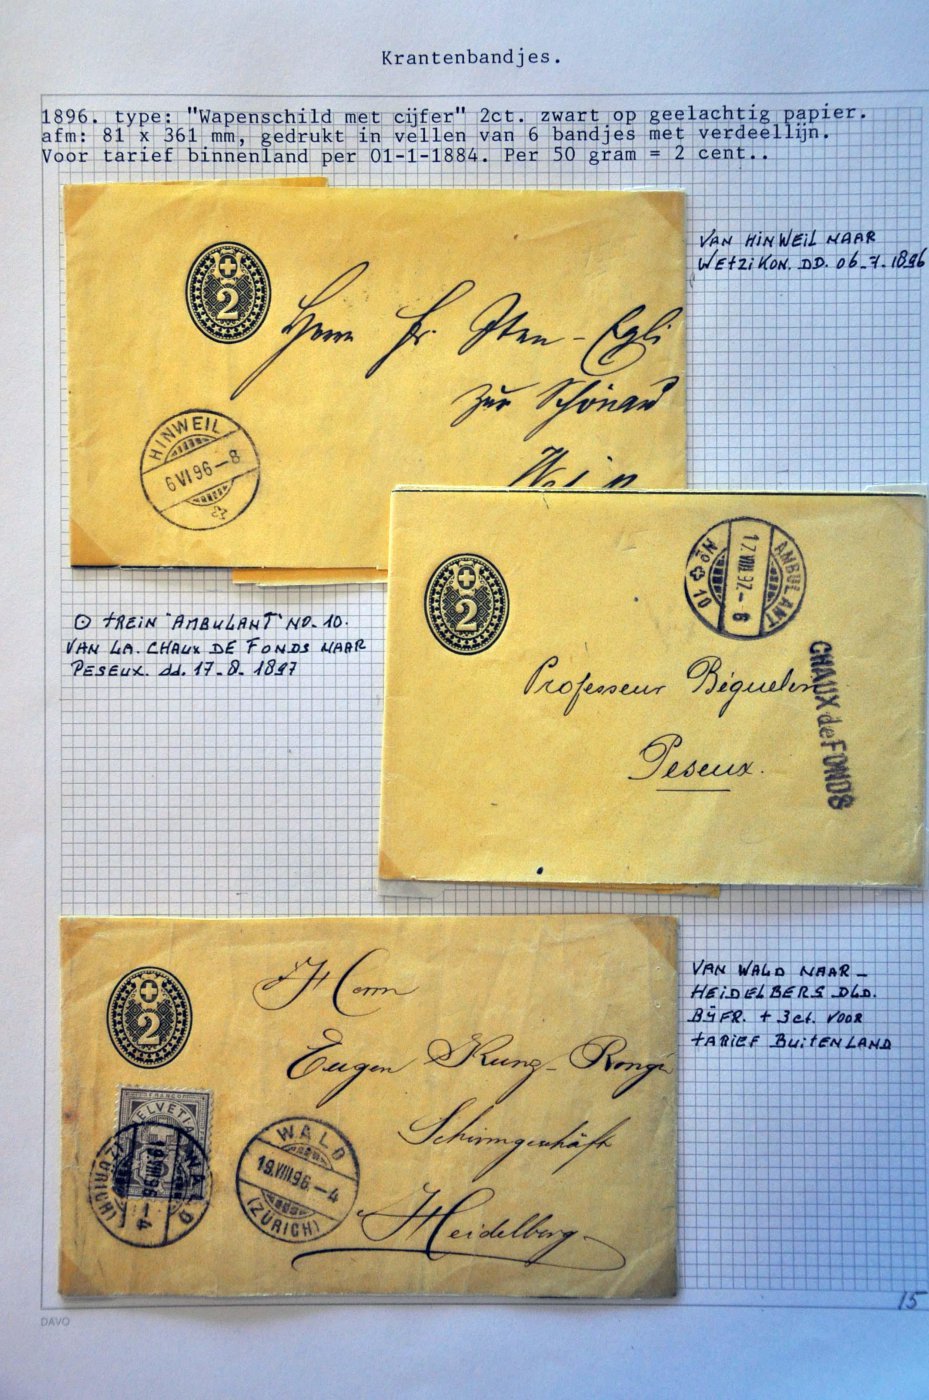 Krantenbandjes.
1896. type: "Wapenschild met cijfer" 2ct. zwart op geelachtig papier.
afm: 81 x 361 mm, gedrukt in vellen van 6 bandjes met verdeellijn.
Voor tarief binnenland per 01-1-1884. Per 50 gram = 2 cent..
2
Herrn
Egli
zur Schönau
HINWEIL
6 VI 96-8
VAN HINWEIL NAAR
WETZIKON. DD. 06-7-1896
TREIN "AMBULANT" NO-10.
VAN LA. CHAUX DE FONDS NAAR
PESEUX. dd. 17-8-1897
2
AMBULANT
17 VIII 97-6
No 10
CHAUX de FONDS
Professeur Béguelin
Peseux.
2
Herrn
Eugen Kunz-Ronge
Schirmgeschäft
Heidelberg.
FRANCO
HELVETIA
WALD
19 VIII 96-4
(ZÜRICH)
WALD
19.VIII.96.-4
(ZÜRICH)
VAN WALD NAAR-
HEIDELBERG DLD.
BŸFR. + 3ct. VOOR
TARIEF BUITENLAND
15
DAVO